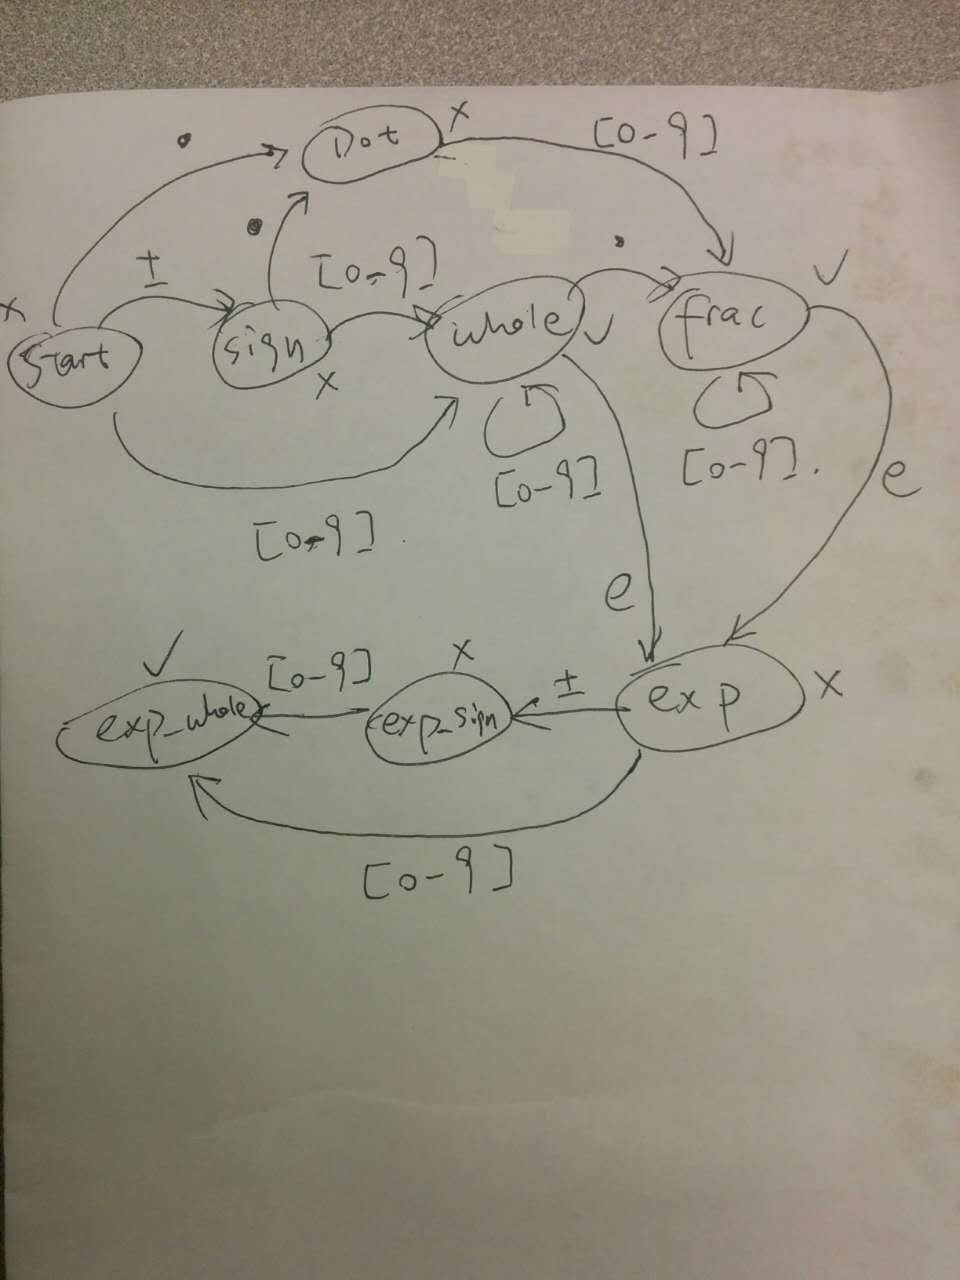 .
Dot
x
[0-9]
.
±
[0-9]
.
✓
x
start
sign
x
whole
✓
frac
[0-9]
[0-9].
e
[0-9].
e
✓
[0-9]
x
±
exp_whole
exp_sign
exp
x
[0-9]